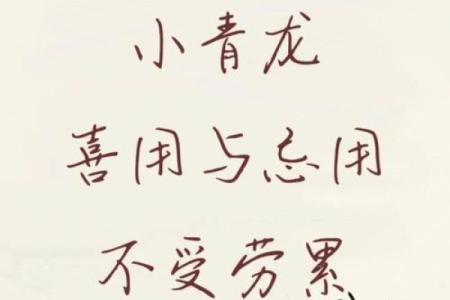 小青龙
喜用与忌用
不受劳累